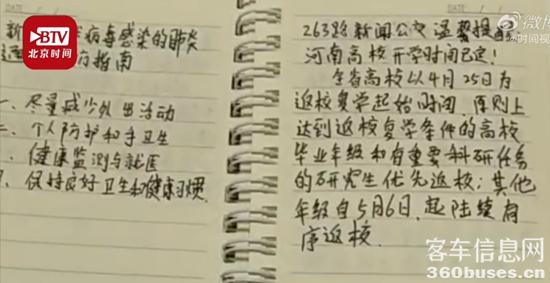 BTV
北京时间
新
病毒感染的肺炎
指南
一、尽量减少外出活动
二、个人防护和手卫生
健康监测与就医
保持良好卫生和健康习惯.
微博
时间视
263路新闻公交温馨提
河南高校开学时间已定!
全省高校以4月25日为
返校复学起始时间,原则上
达到返校复学条件的高校
毕业年级和有重要科研任务
的研究生优先返校;其他
年级自5月6日,起陆续有
序返校.
客车信息网
360buses.cn